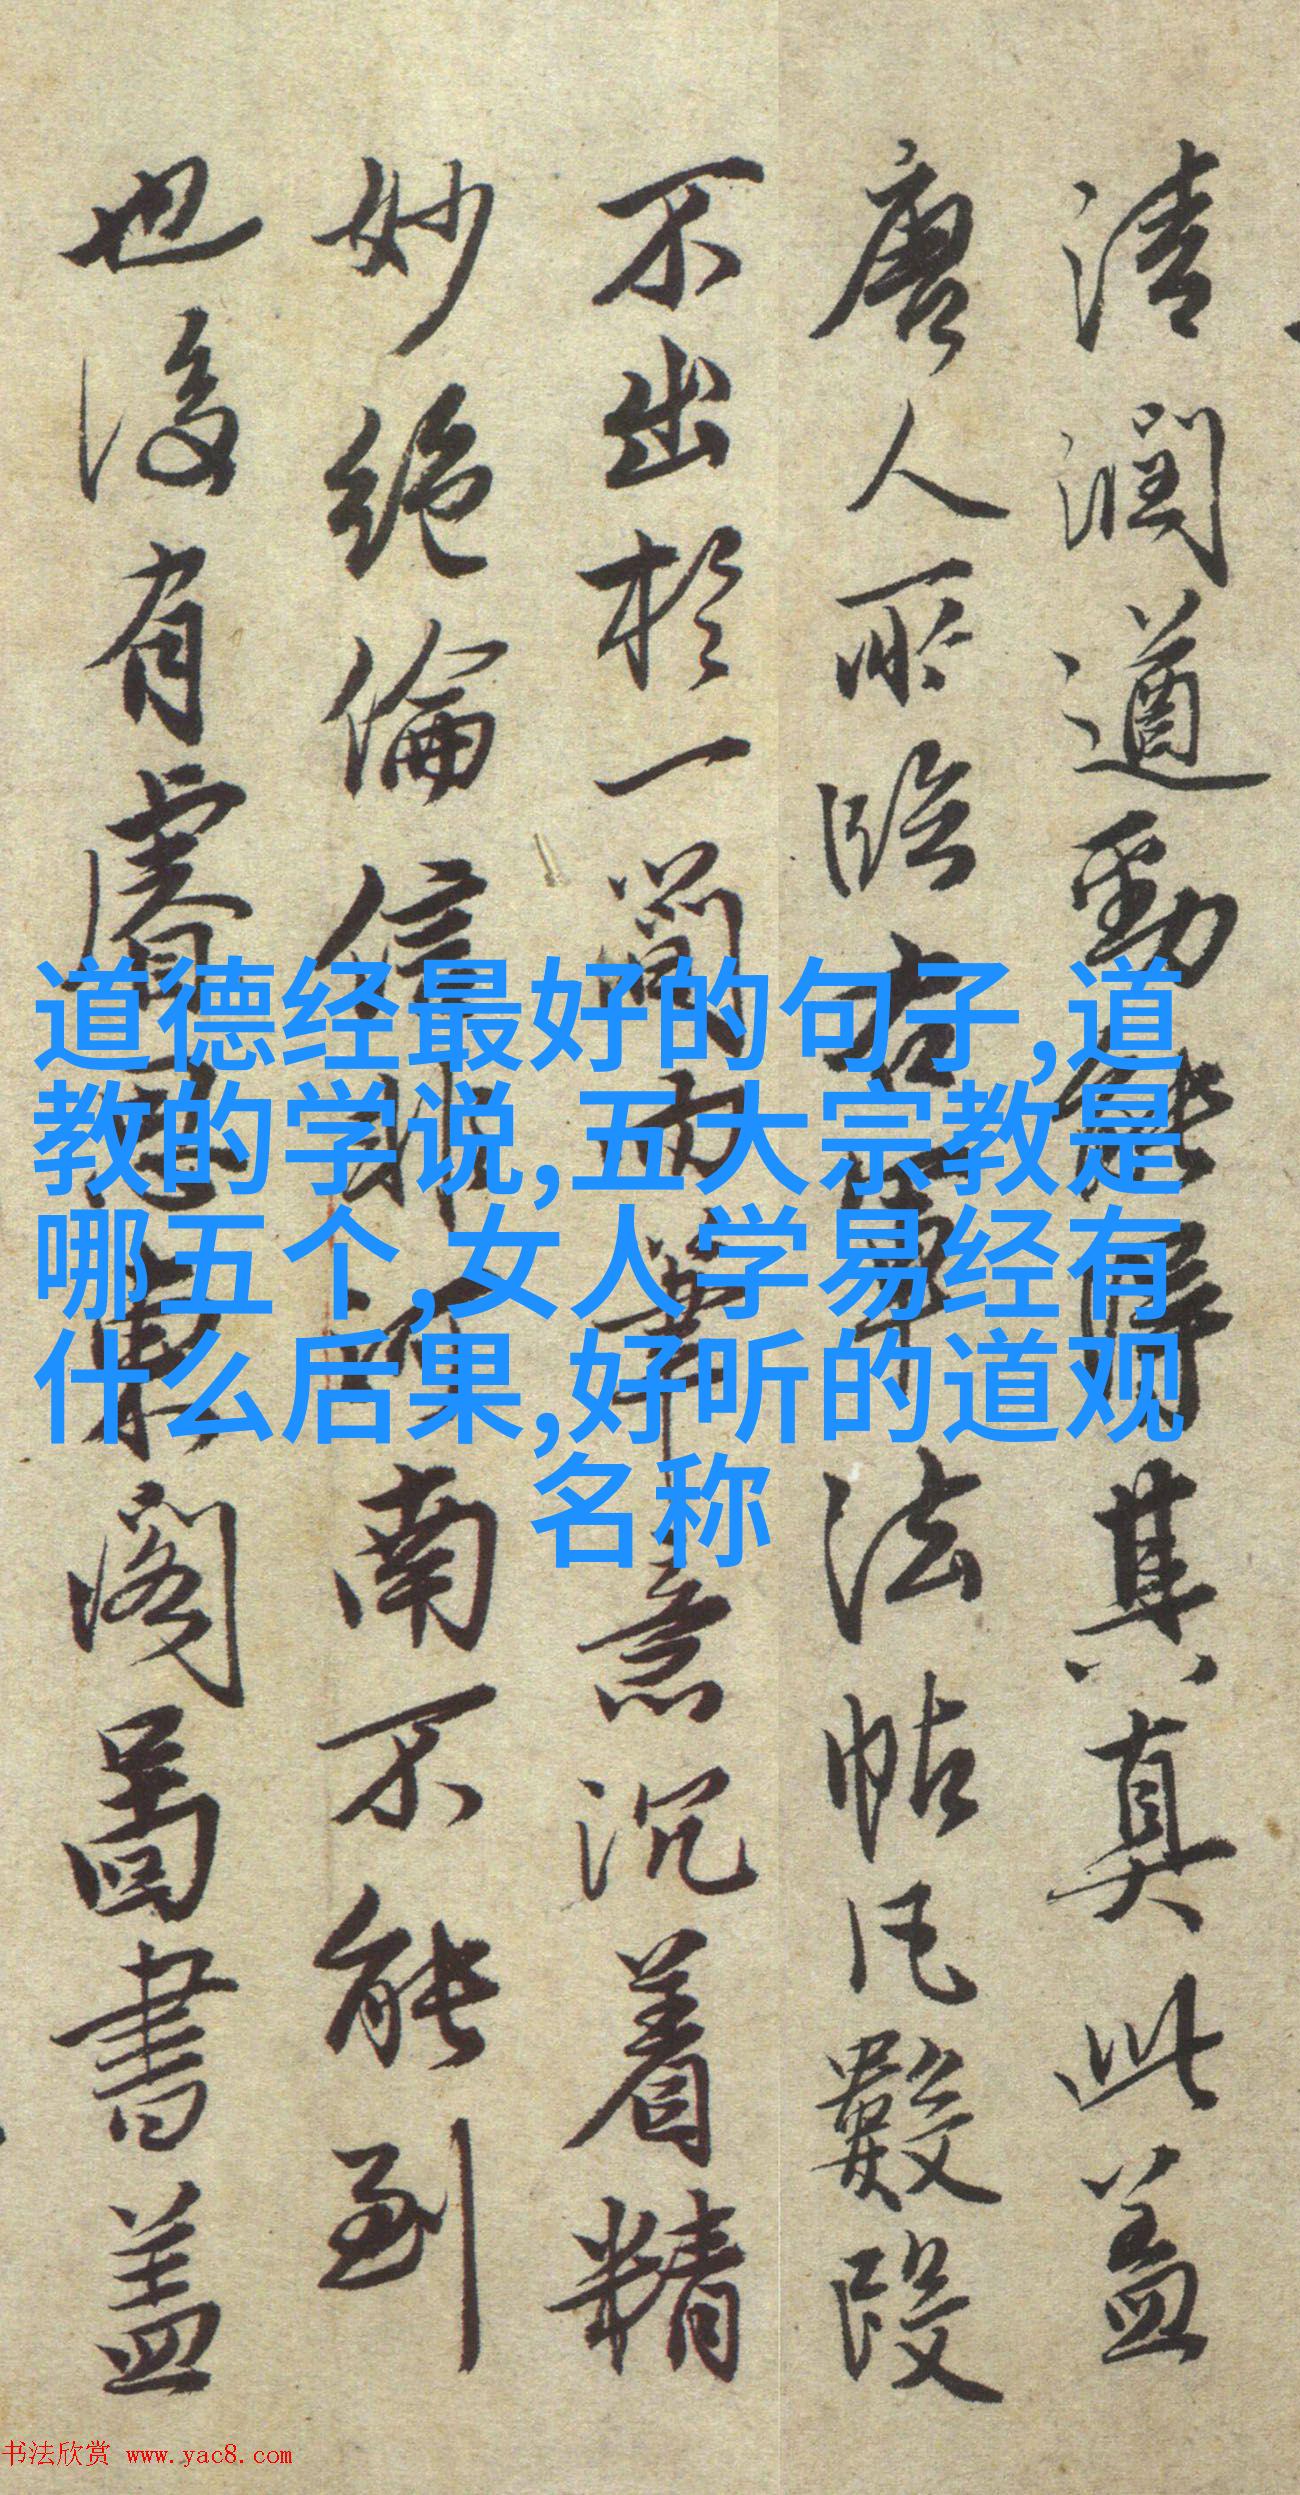 清润遒劲能得其真真此盖
唐人所临右军法帖凡数段
不出于一简而笔意沉着精
妙绝伦信非江南不能到
也后有睿思东阁图书盖
道德经最好的句子,道
教的学说,五大宗教是
哪五个,女人学易经有
什么后果,好听的道观
名称
书法欣赏 www.yac8.com